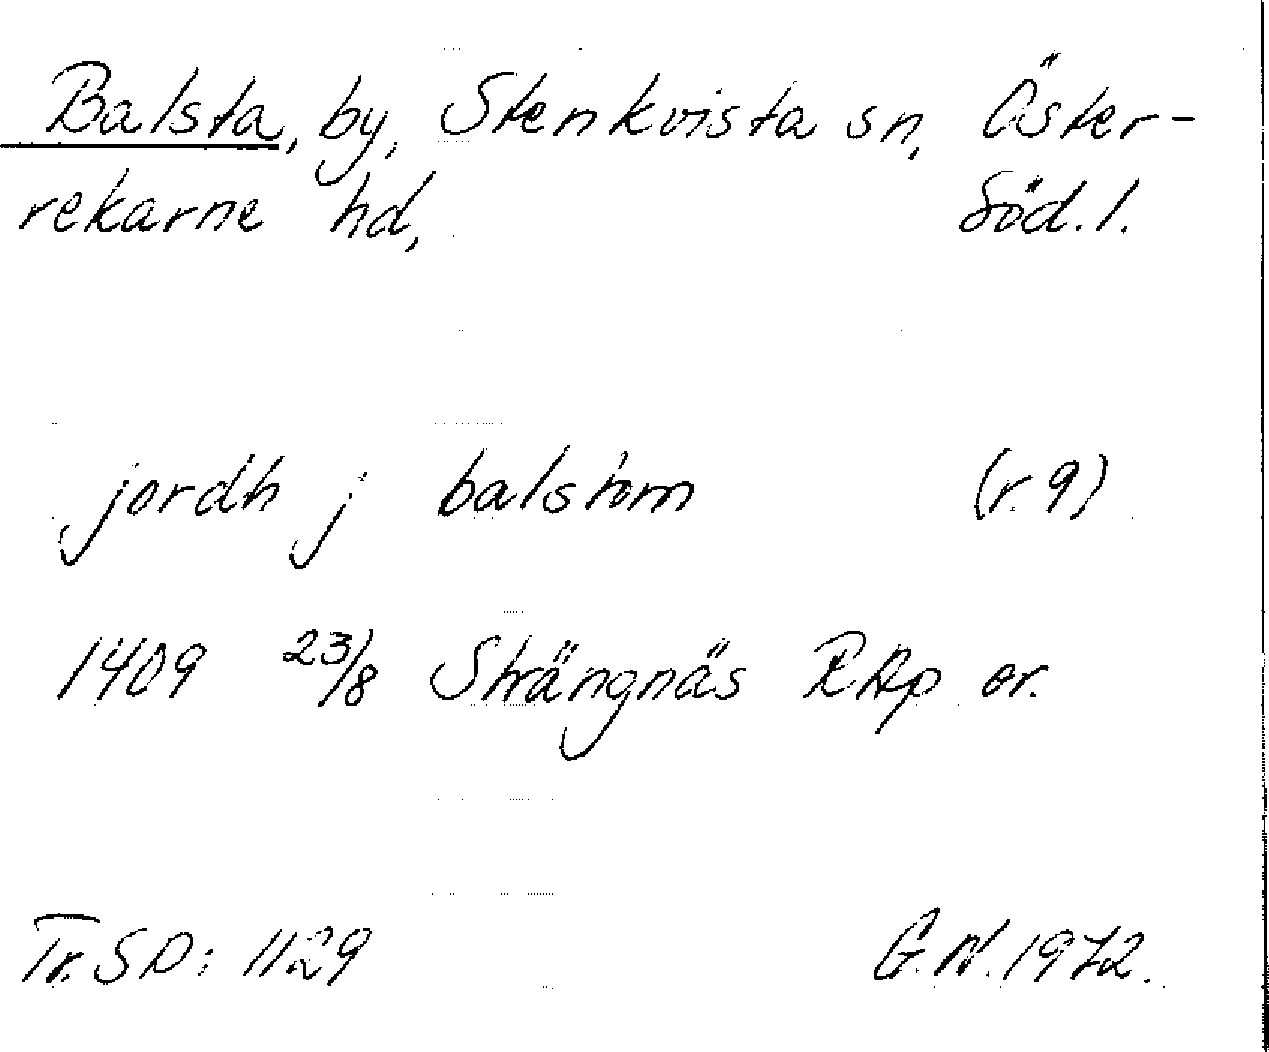 Balsta, by, Stenkvista sn, Öster-
rekarne hd, Söd. l.
jordh j balstom (r. 9)
1409 23/8 Strängnäs RAp or.
Tr. SD: 1129 G.N. 1972.